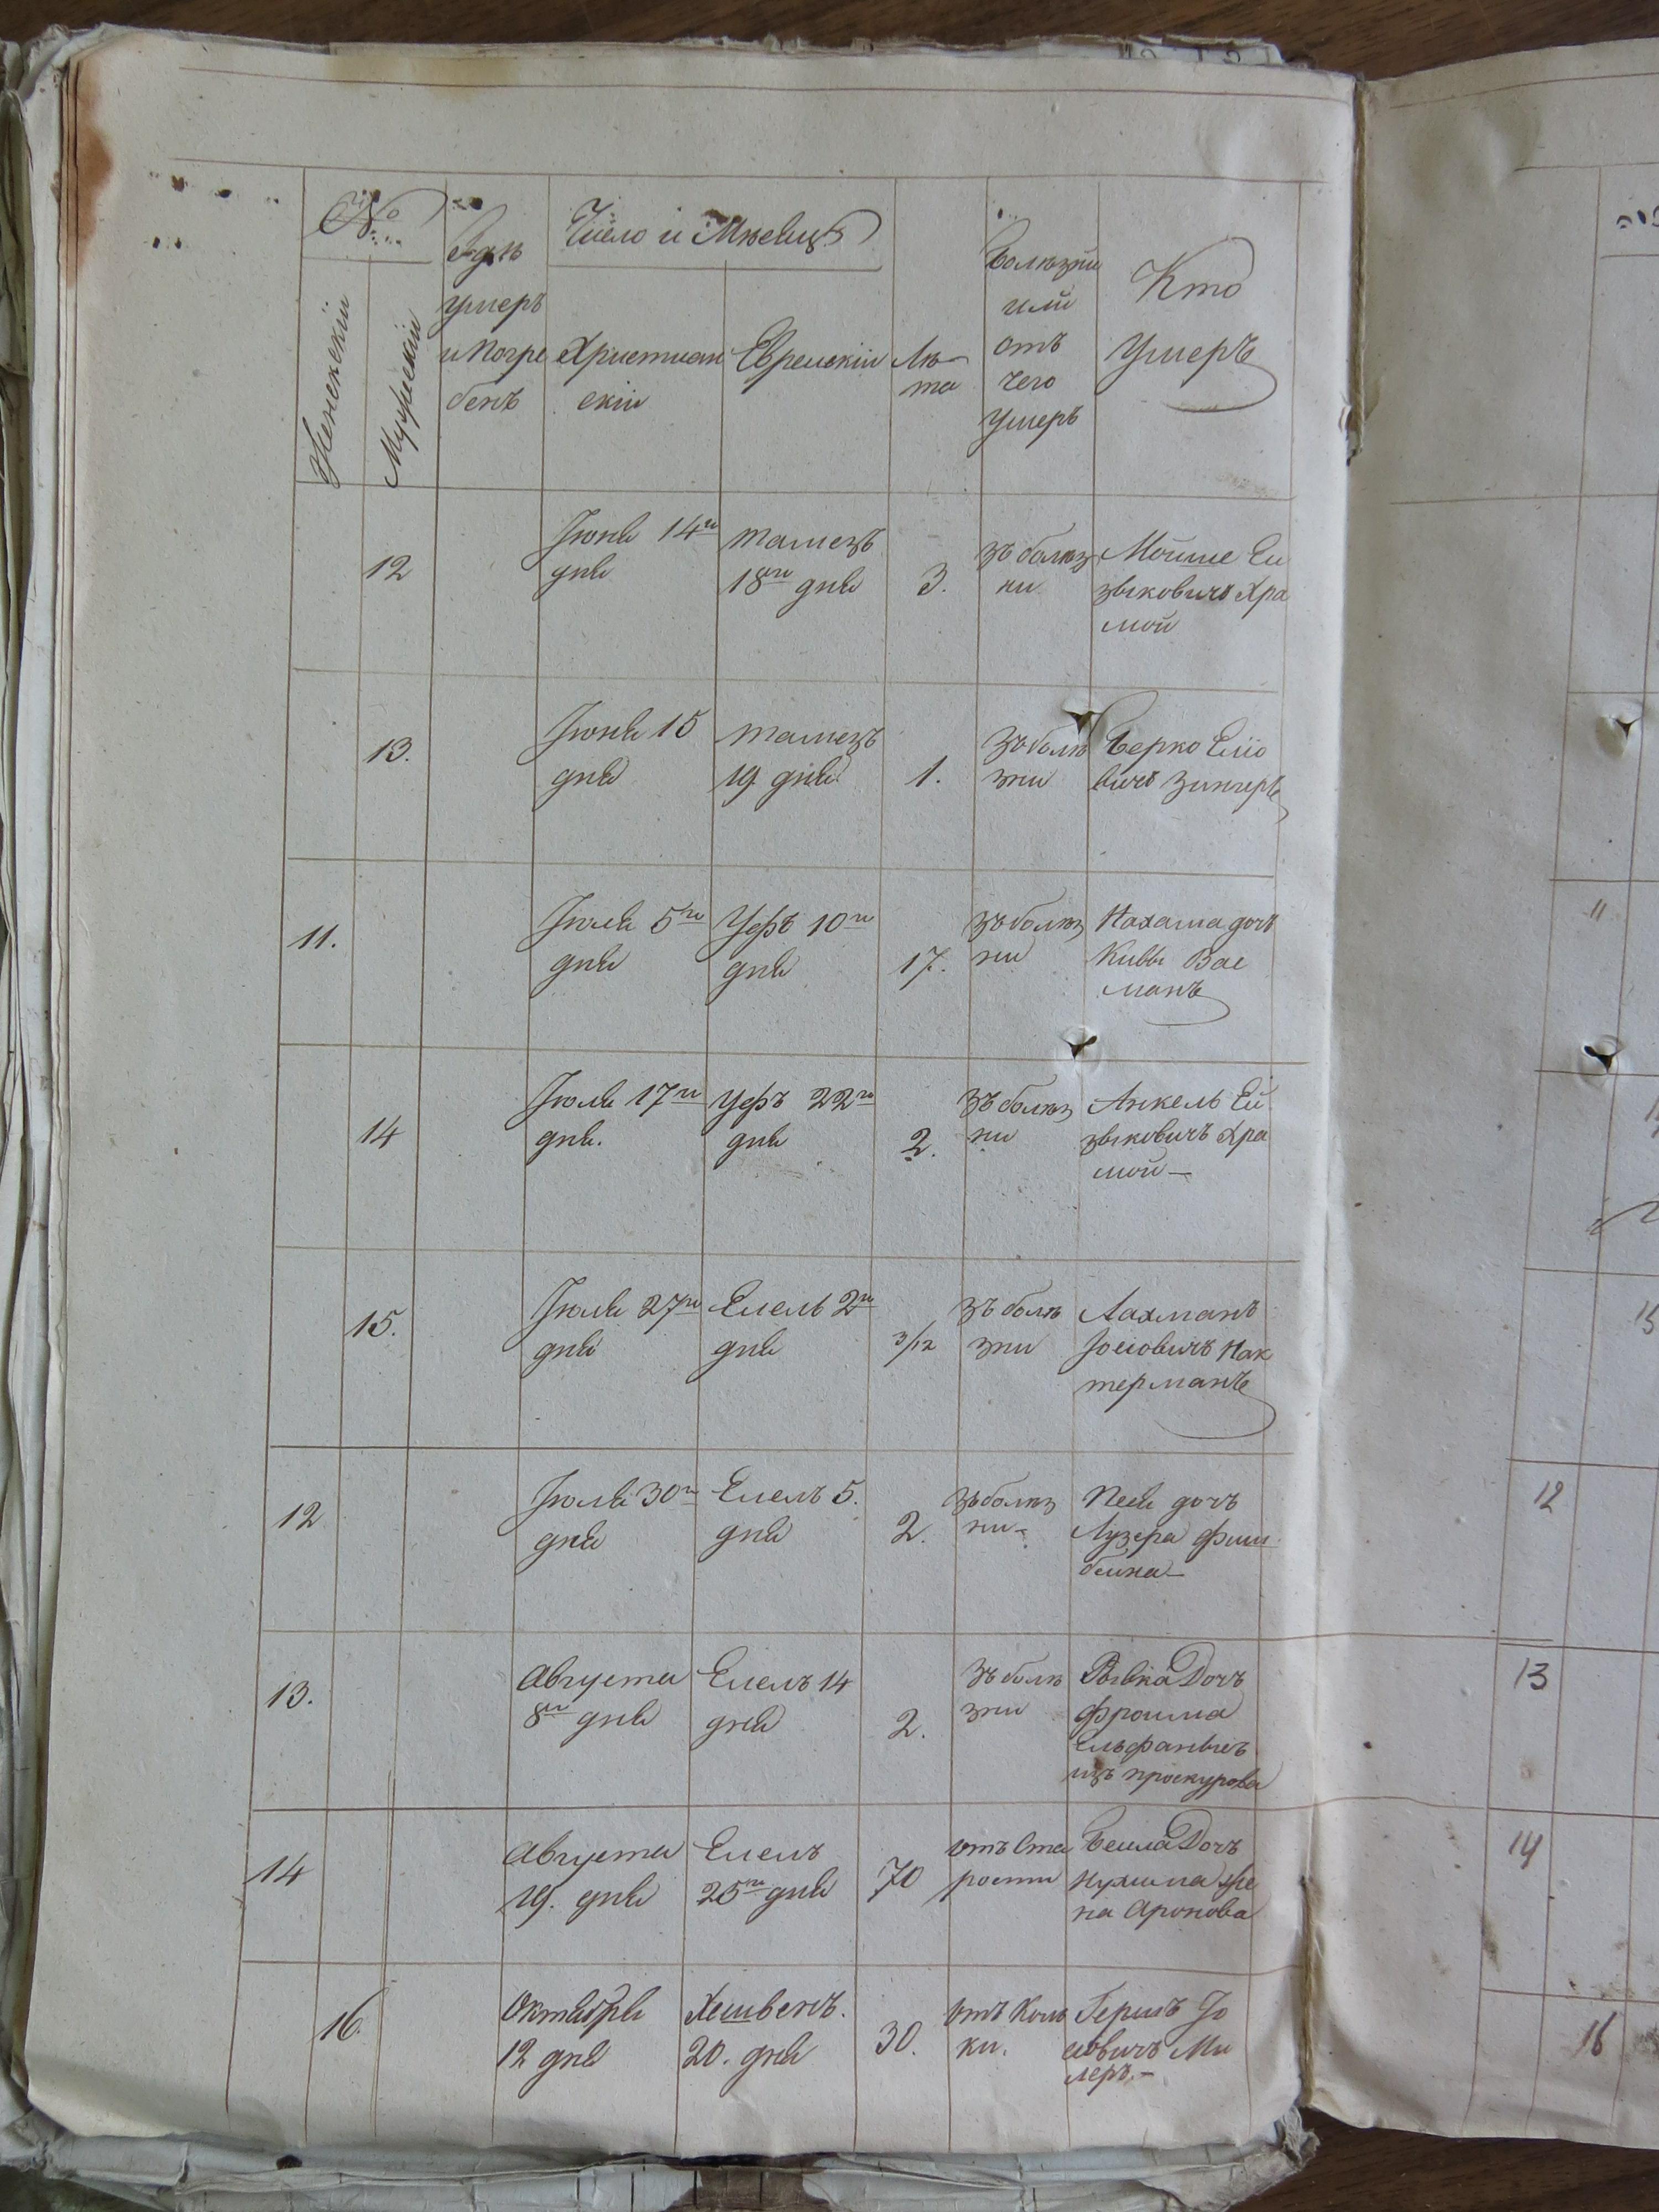 №
Число и Мѣсецъ
Женскій
Мужескій
Гдѣ
умеръ
и погре
бенъ
Христиан
скій
Еврейскій
Лѣ
та
Болѣзни
или
отъ
чего
умеръ
Кто
Умеръ
12
Іюня 14го
дня
тамезъ
18го дня
3.
зъ болѣз
ни
Мойше Еи
зыковичъ Хра
мой
13.
Іюня 15
дня
тамезъ
19. дня
1.
зъ болѣ
зни
Берко Еліо
вичъ Зингеръ
11.
Іюля 5го
дня
Уфъ 10го
дня
17.
зъ болѣз
ни
Нахама дочь
Кивы Вас
манъ
14
Іюля 17го
дня.
Уфъ 22го
дня
2.
зъ болѣз
ни
Анкель Ей
зыковичъ Хра
мой—
15.
Іюля 27го
дня
Елель 2го
дня
3/12
зъ болѣ
зни
Лахманъ
Іосіовичъ Нак
терманъ
12
Іюля 30го
дня
Елелъ 5.
дня
2.
зъ болѣз
ни-
Песя дочъ
Лузера Фиш
бейна—
13.
Августа
8го дня
Елелъ 14
дня
2.
зъ болѣ
зни
Рывка Дочъ
Фроима
изъ Проскурова
14
Августа
19. дня
Елелъ
25го дня
70
отъ Ста
рости
Бейла Дочъ
Нухима же
на Аронова
16.
Октября
12 дня
Хешвенъ.
20. дня
30.
отъ Коль
ки.
Гершъ Іо
сіовичъ Ми
леръ.—
11
12
13
14
16